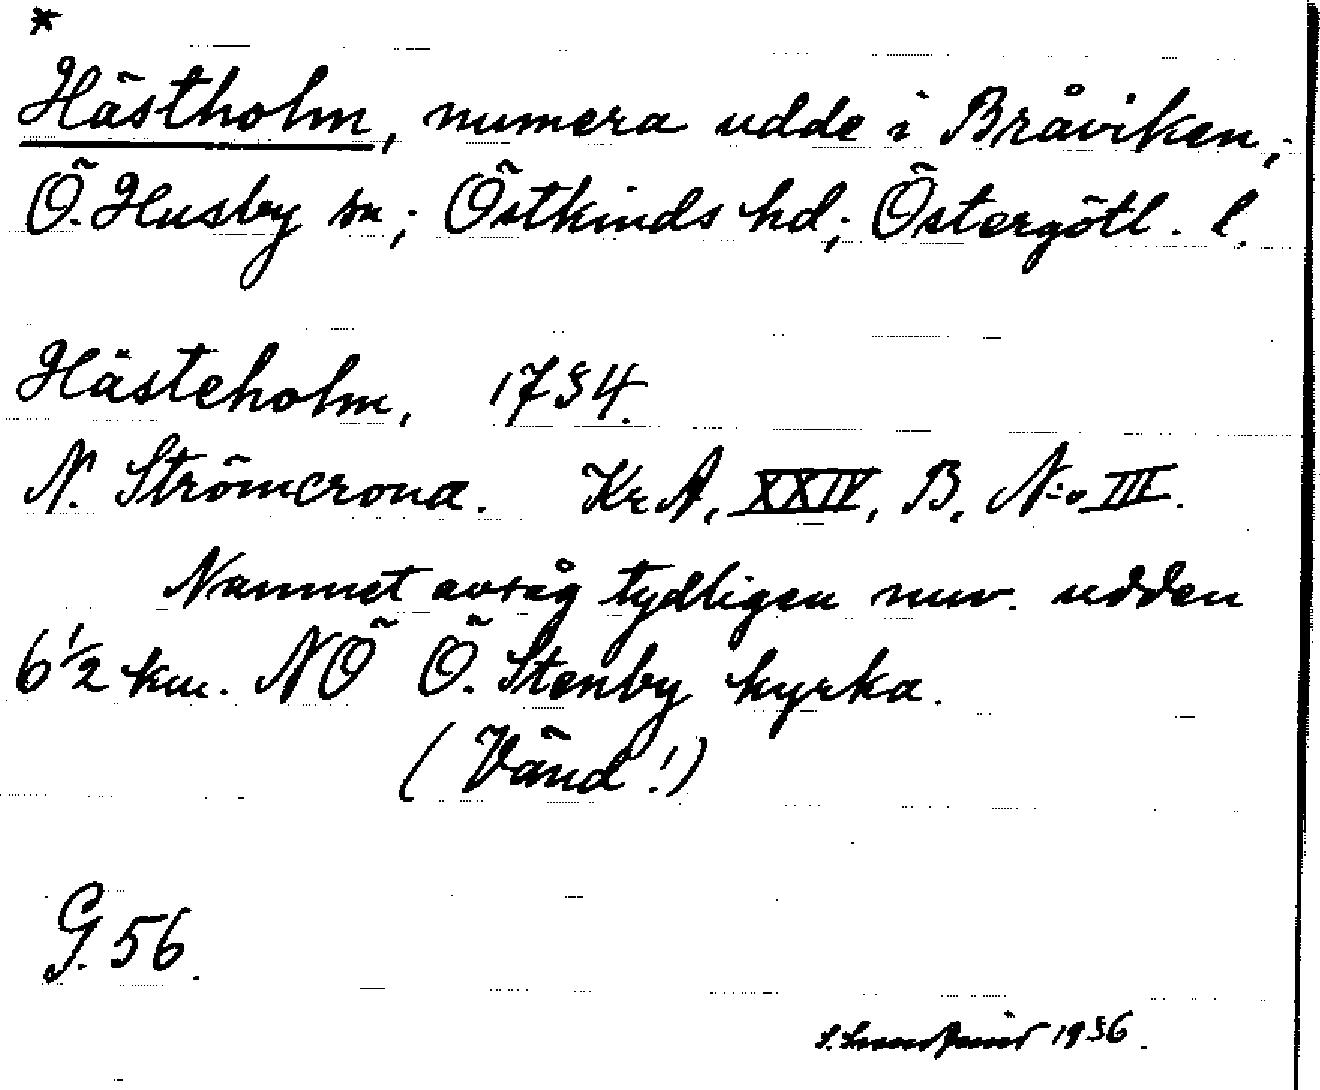 *
Hästholm, numera udde i Bråviken,
Ö. Husby sn; Östkinds hd; Östergötl. l.
Hästeholm, 1734.
N. Strömcrona. Kr A, XXIV, B, N:o III.
Namnet avsåg tydligen nuv. udden
6 1/2 km. NÖ Ö. Stenby kyrka.
(Vänd!)
G. 56.
1936.